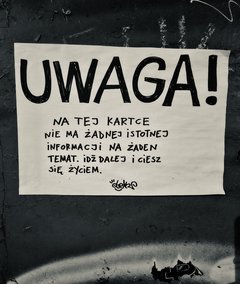 UWAGA!
NA TEJ KARTCE
NIE MA ŻADNEJ ISTOTNEJ
INFORMACJI NA ŻADEN
TEMAT. IDŹ DALEJ I CIESZ
SIĘ ŻYCIEM.